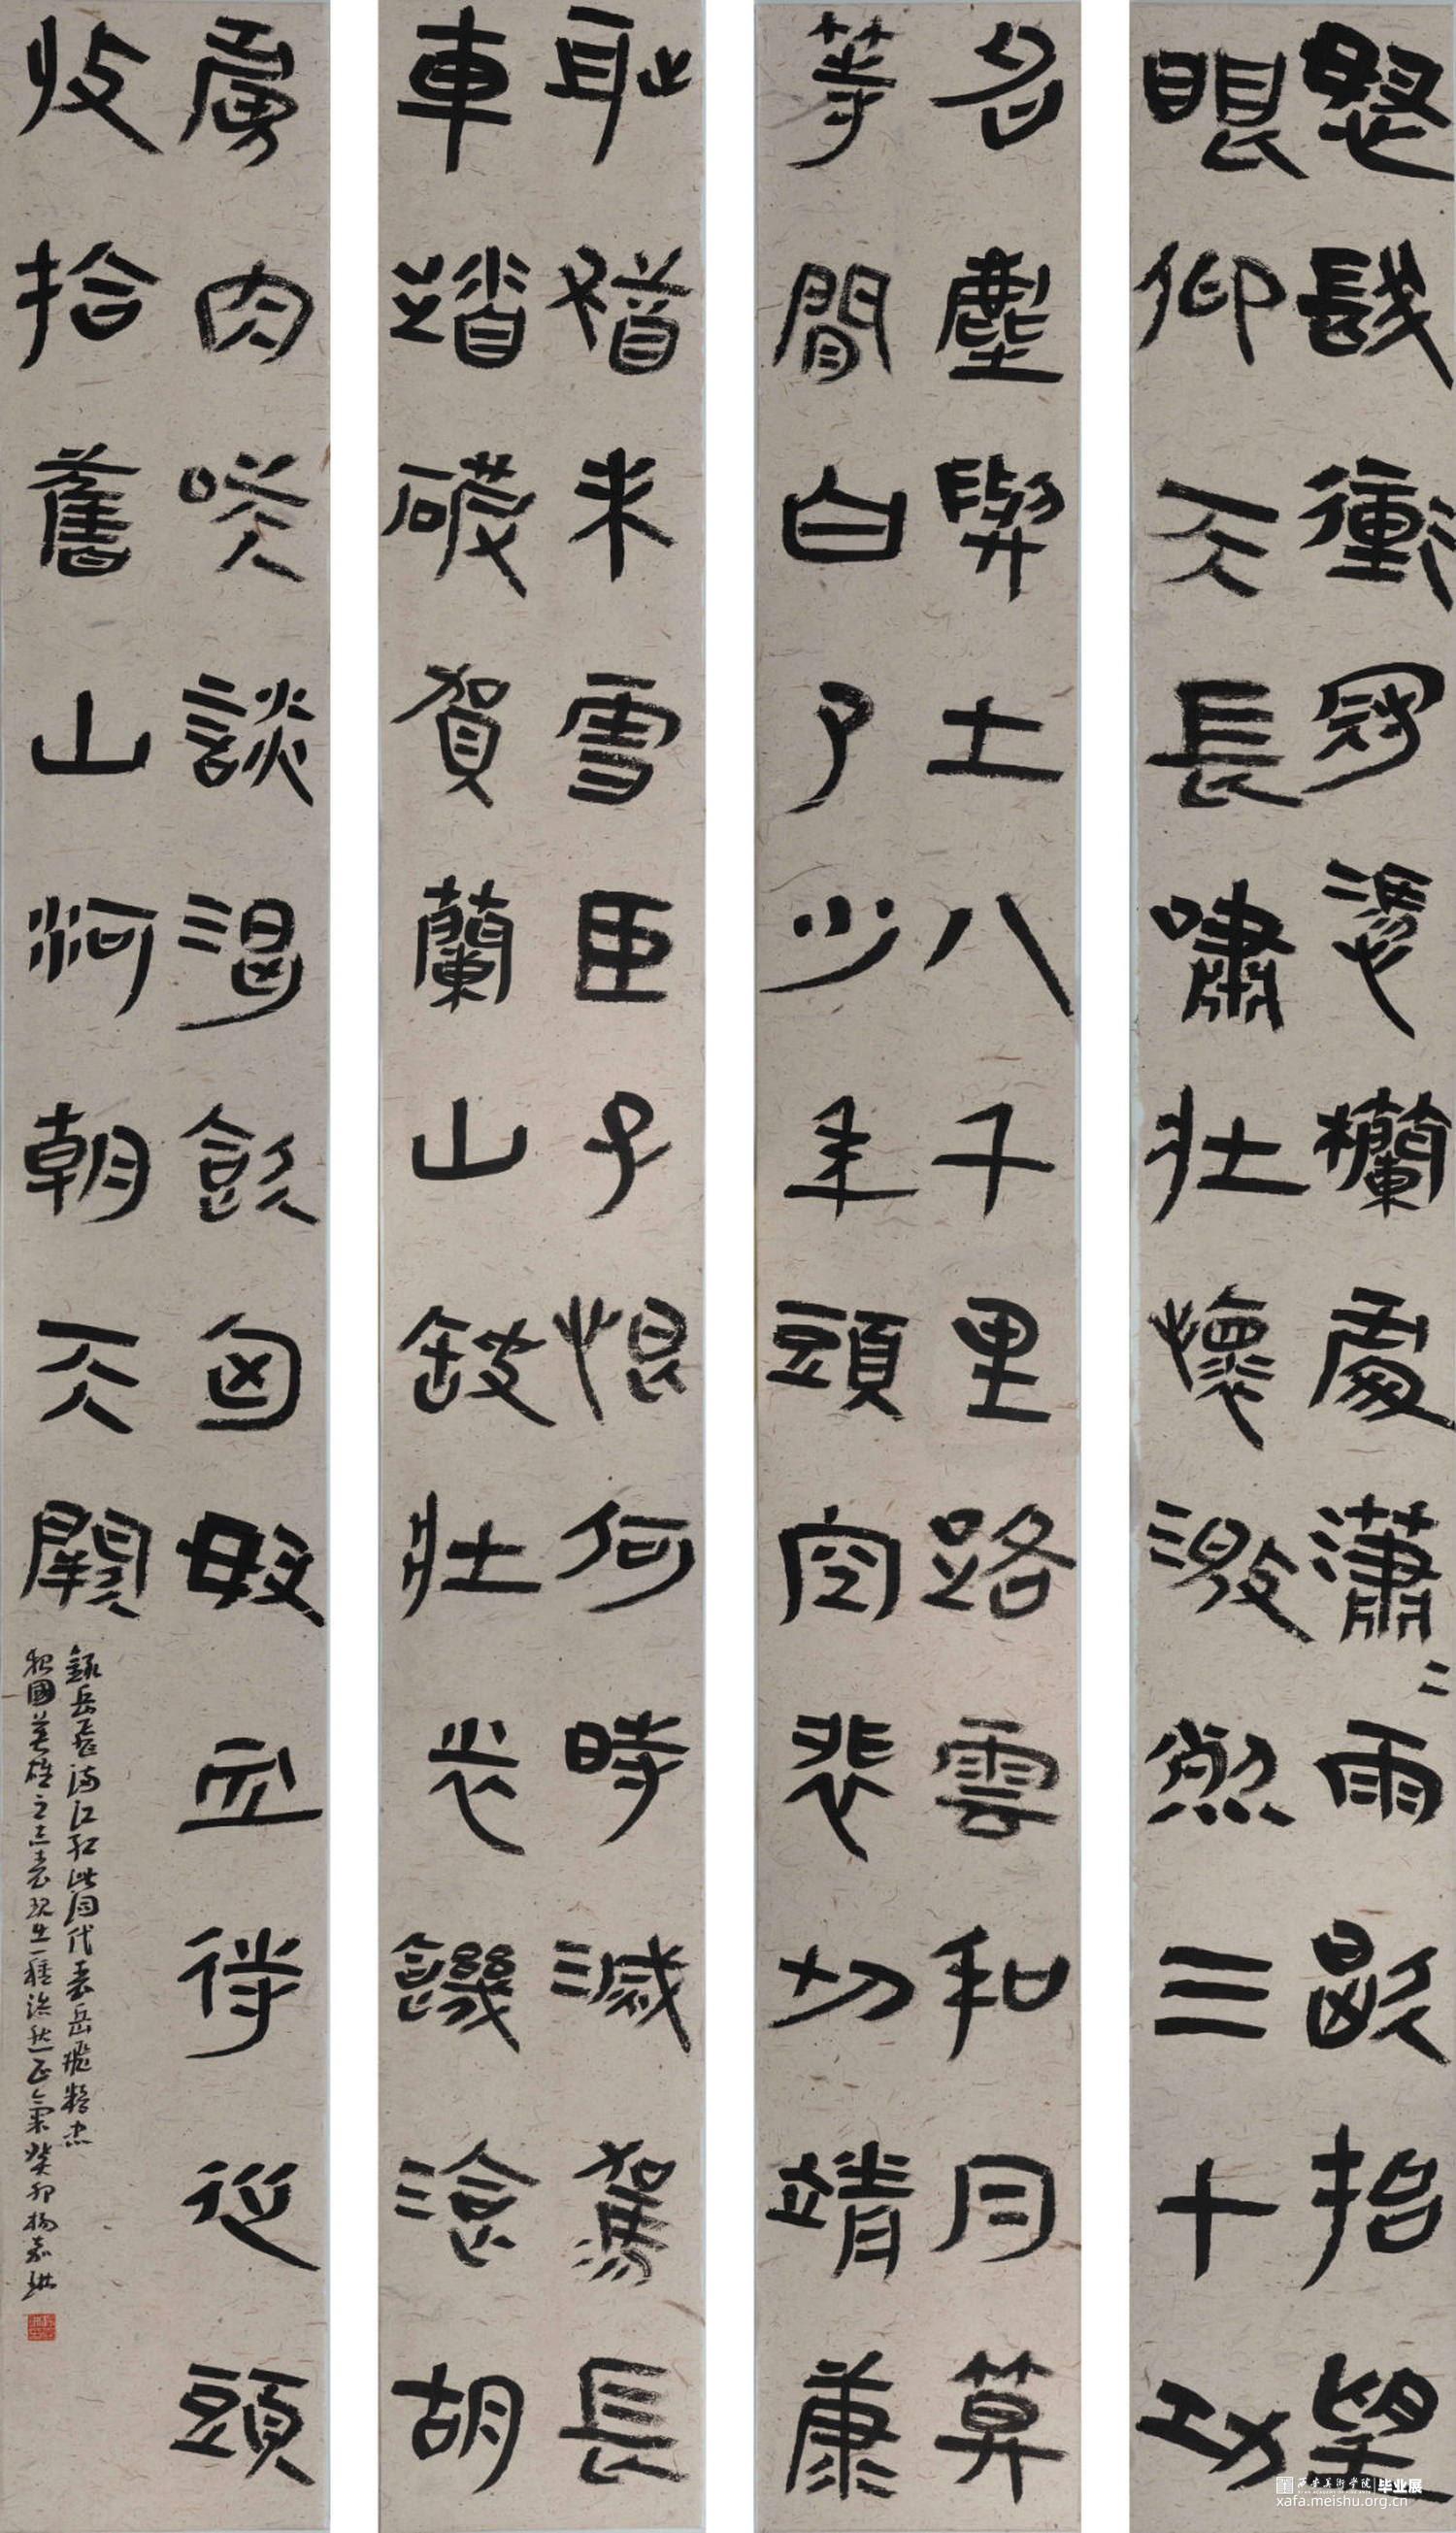 怒髮衝冠憑欄處瀟二雨歇抬望
眼仰天長嘯壯懷激烈三十功
名塵與土八千里路雲和月莫
等閒白了少年頭空悲切靖康
恥猶未雪臣子恨何時滅駕長
車踏破賀蘭山缺壯志飢餐胡
虜肉笑談渴飲匈奴血待從頭
收拾舊山河朝天闕
錄岳飛滿江紅此詞代表岳飛精忠
報國英雄之志表現出一種浩然正氣癸卯楊嘉
西安美術學院 毕业展
xafa.meishu.org.cn